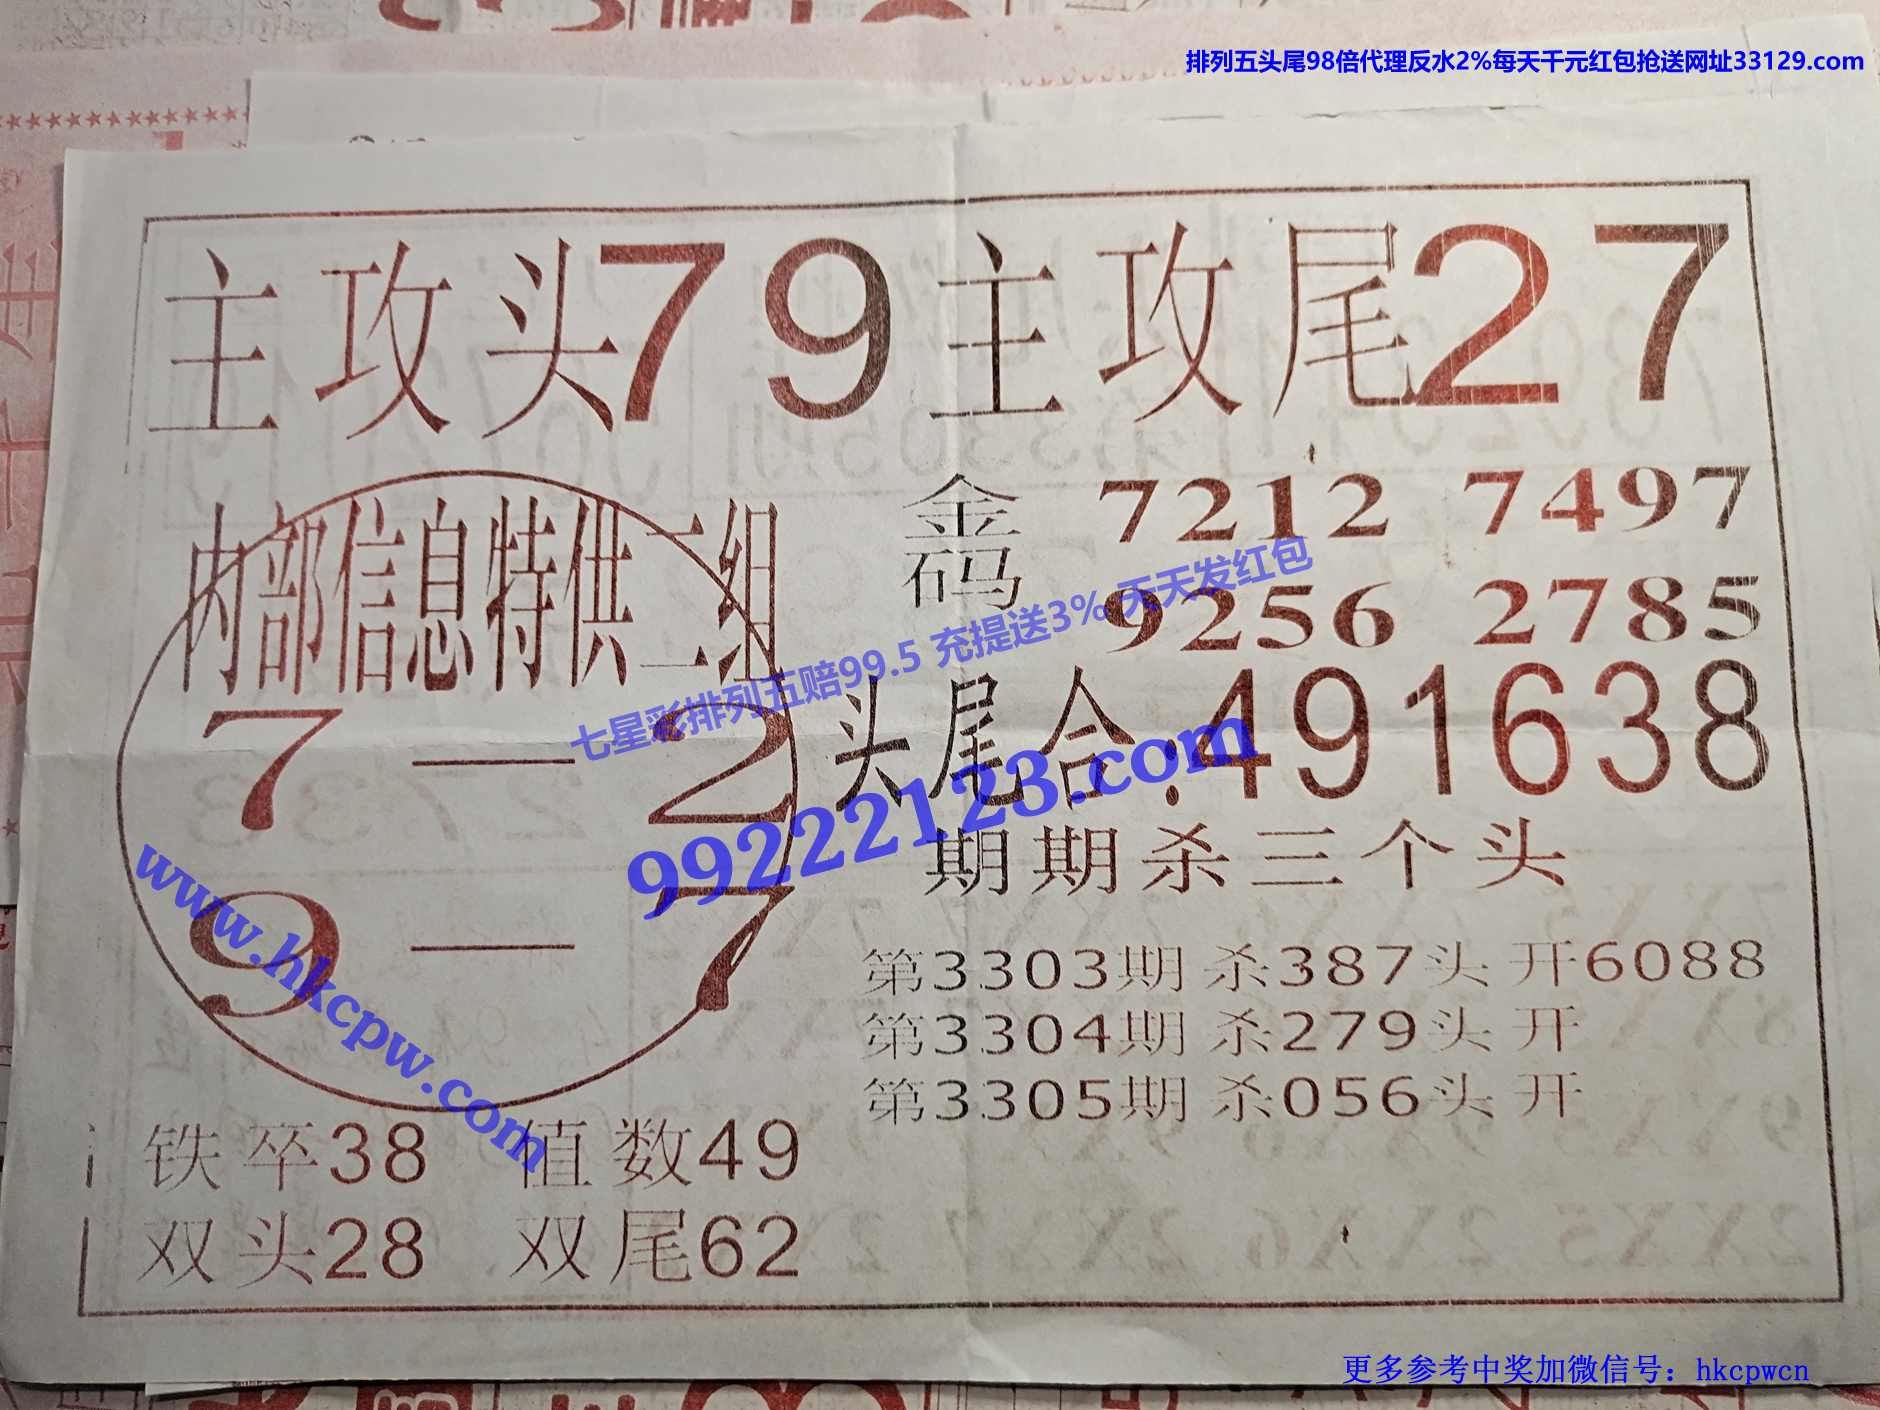 排列五头尾98倍代理反水2%每天千元红包抢送网址33129.com
主攻头79 主攻尾27
内部信息特供二组
7—2
9—7
金码 7212 7497
9256 2785
七星彩排列五赔99.5 充提送3% 天天发红包
99222123.com
头尾合:491638
期期杀三个头
第3303期 杀387头 开6088
第3304期 杀279头 开
第3305期 杀056头 开
www.hkcpw.com
铁卒38 值数49
双头28 双尾62
更多参考中奖加微信号：hkcpwcn